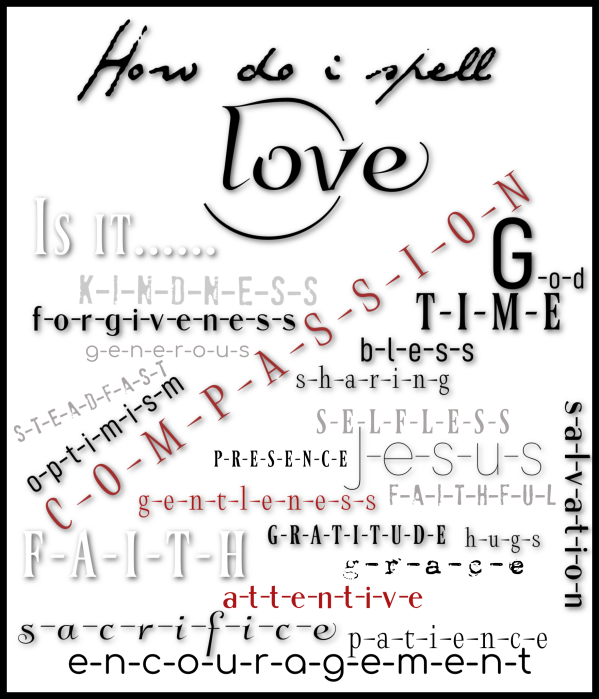 How do i spell
love
Is it......
G-o-d
K-I-N-D-N-E-S-S
C-O-M-P-A-S-S-I-O-N
T-I-M-E
f-o-r-g-i-v-e-n-e-s-s
g-e-n-e-r-o-u-s
b-l-e-s-s
s-h-a-r-i-n-g
S-T-E-A-D-F-A-S-T
o-p-t-i-m-i-s-m
S-E-L-F-L-E-S-S
P-R-E-S-E-N-C-E
J-e-s-u-s
s-a-l-v-a-t-i-o-n
g-e-n-t-l-e-n-e-s-s
F-A-I-T-H-F-U-L
F-A-I-T-H
G-R-A-T-I-T-U-D-E
h-u-g-s
g-r-a-c-e
a-t-t-e-n-t-i-v-e
s-a-c-r-i-f-i-c-e
p-a-t-i-e-n-c-e
e-n-c-o-u-r-a-g-e-m-e-n-t